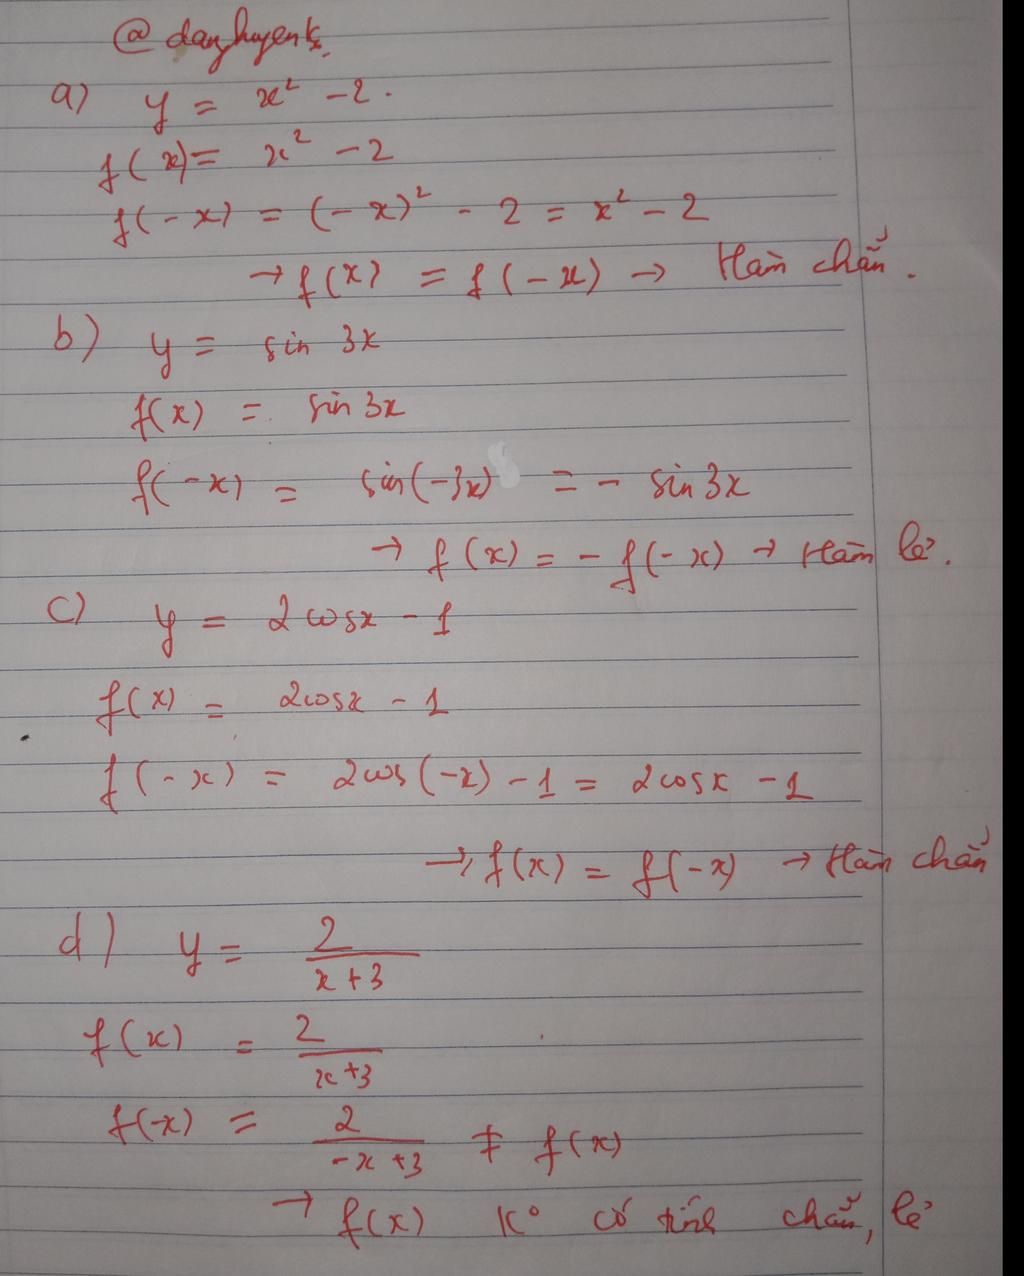 @ danghuyenk
a) y = x² - 2.
f(x) = x² - 2
f(-x) = (-x)² - 2 = x² - 2
→ f(x) = f(-x) → Hàm chẵn.
b) y = sin 3x
f(x) = sin 3x
f(-x) = sin(-3x) = - sin 3x
→ f(x) = - f(-x) → Hàm lẻ.
c) y = 2 cosx - 1
f(x) = 2cosx - 1
f(-x) = 2cos(-x) - 1 = 2cosx - 1
→ f(x) = f(-x) → Hàm chẵn
d) y = 2/(x+3)
f(x) = 2/(x+3)
f(-x) = 2/(-x+3) ≠ f(x)
→ f(x) K° có tính chẵn, lẻ